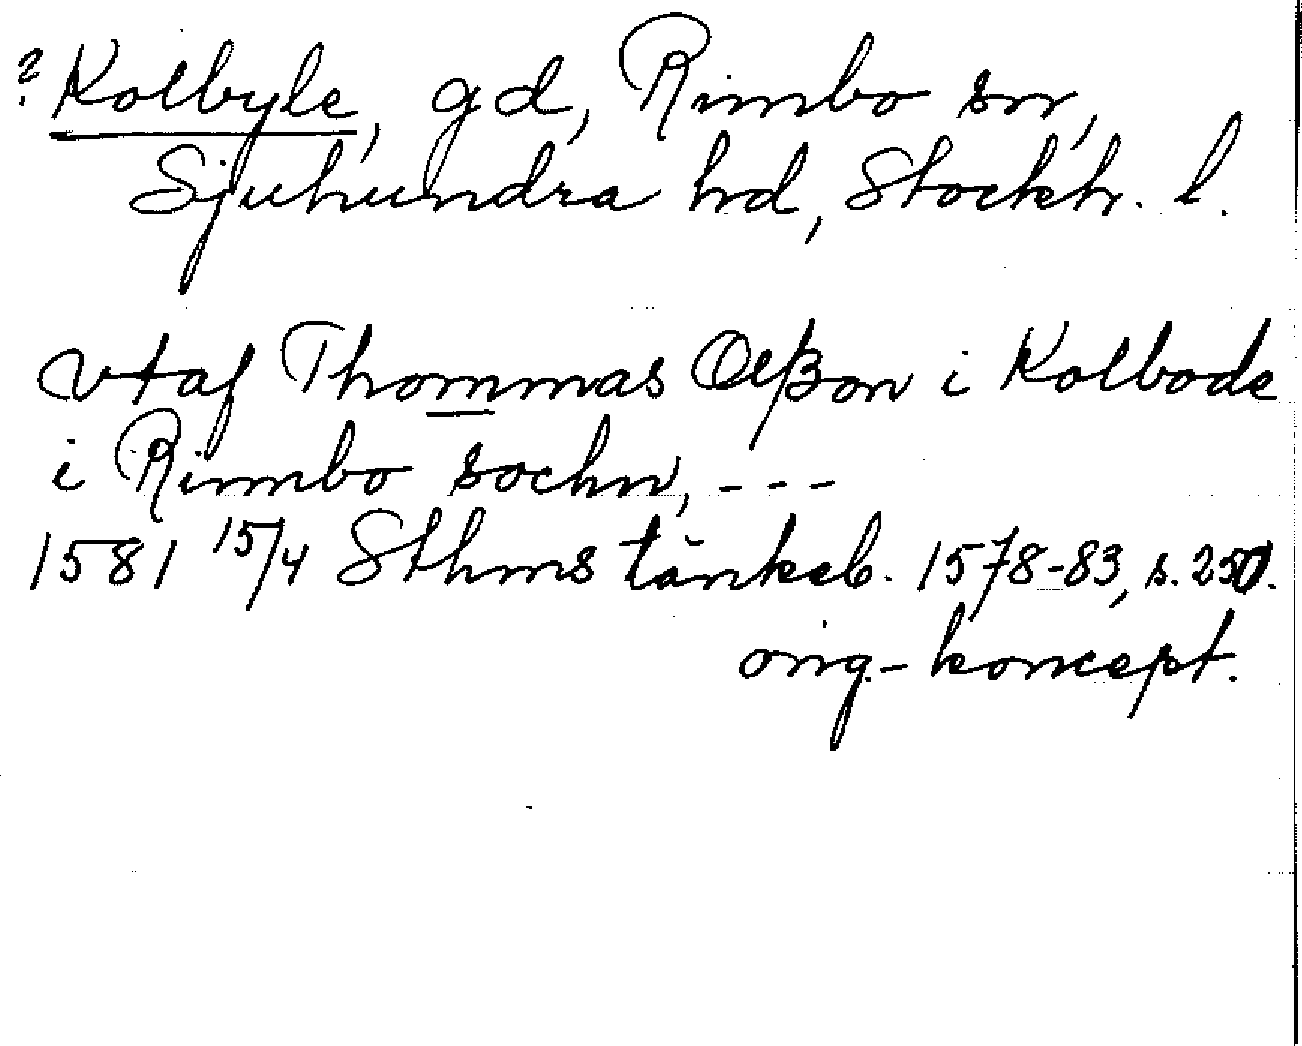 ? Kolbyle, gd, Rimbo sn,
Sjuhundra hd, Stockh. l.
vtaf Thommas Olßon i Kolbode
i Rimbo sochn, ---
1581 15/4 Sthms tänkeb. 1578-83, s. 250.
orig.-koncept.